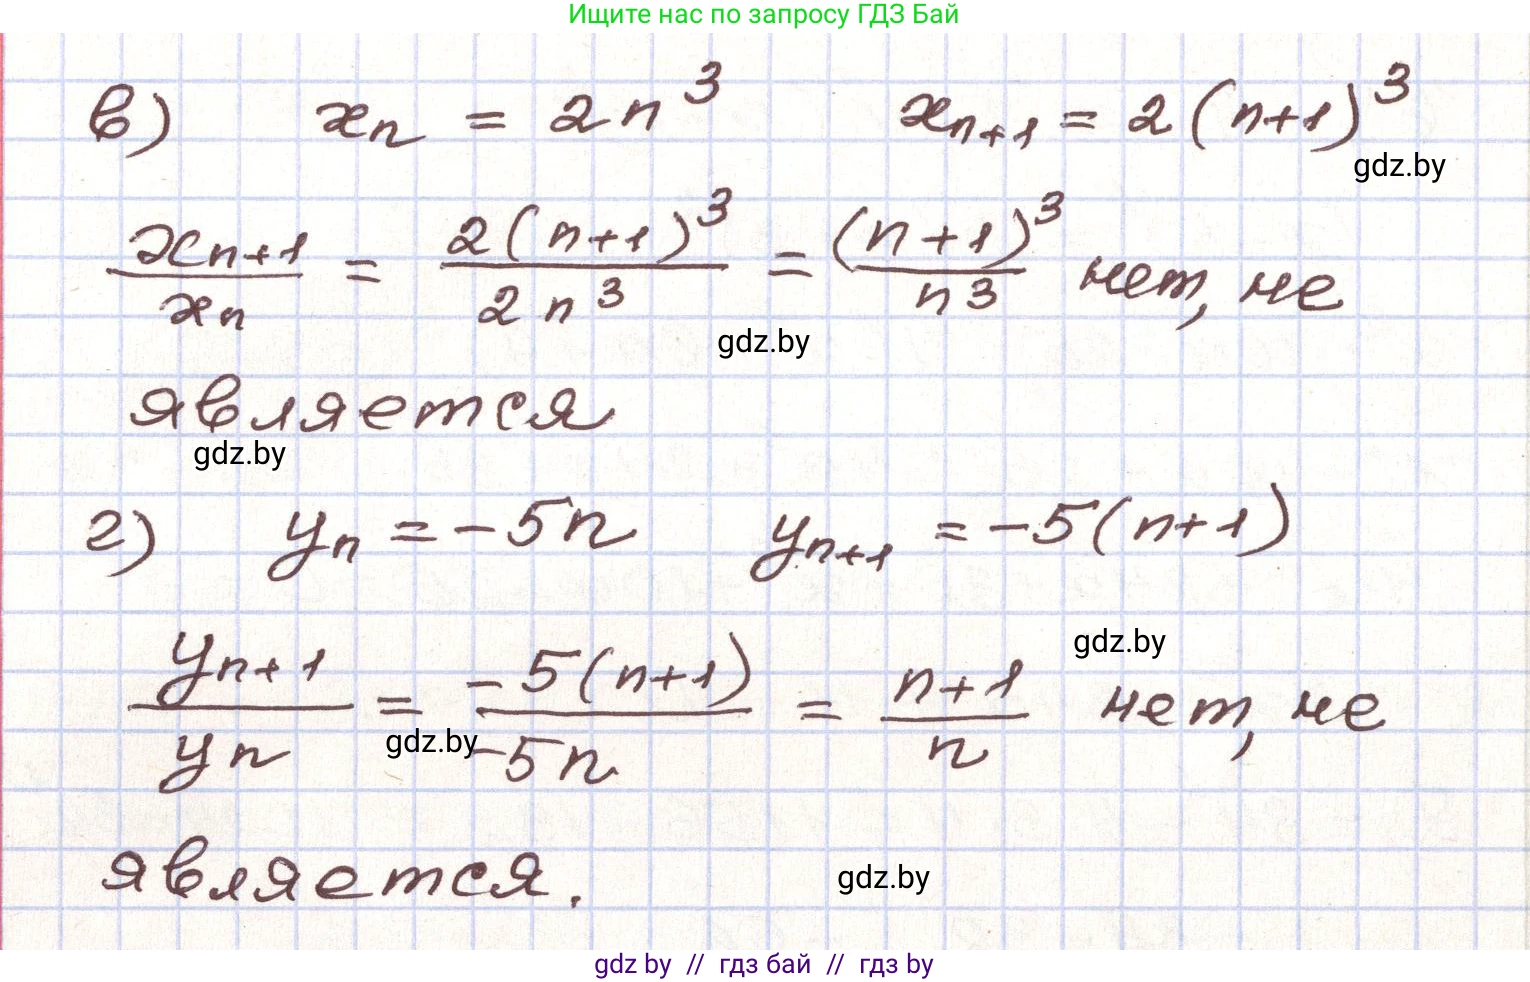 Ищите нас по запросу ГДЗ Бай
в) xₙ = 2n³ xₙ₊₁ = 2(n+1)³
gdz.by
xₙ₊₁/xₙ = 2(n+1)³/2n³ = (n+1)³/n³ нет, не
gdz.by
является
gdz.by
г) yₙ = -5n yₙ₊₁ = -5(n+1)
gdz.by
yₙ₊₁/yₙ = -5(n+1)/-5n = n+1/n нет, не
gdz.by
является.
gdz.by
gdz by // гдз бай // гдз by